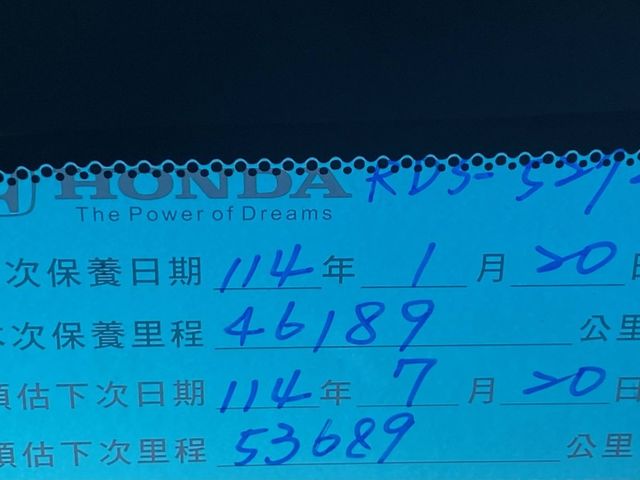 HONDA
The Power of Dreams
次保養日期 114 年 1 月 20 日
次保養里程 46189 公里
預估下次日期 114 年 7 月 20 日
預估下次里程 53689 公里